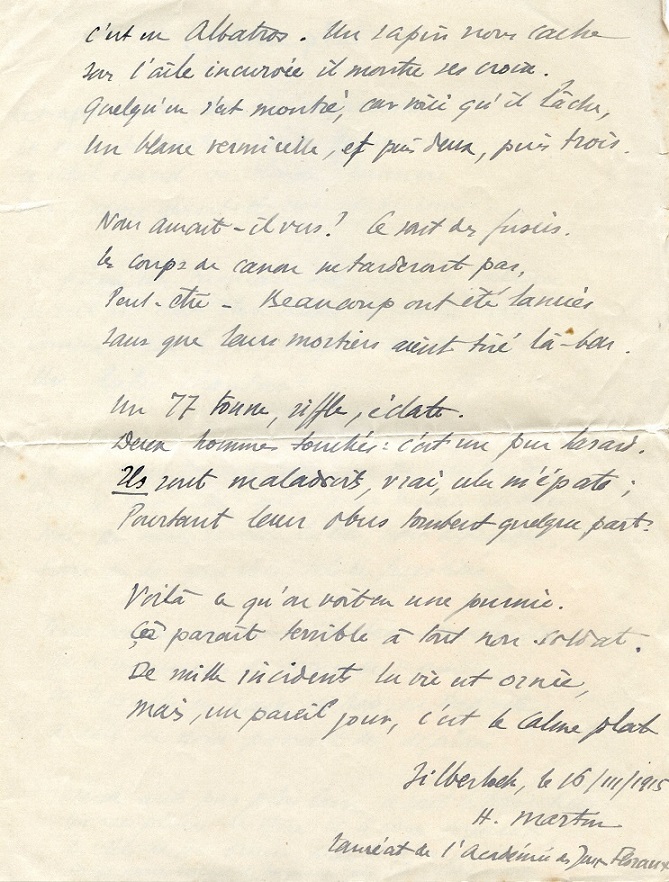 C'est un Albatros. Un sapin nous cache
Sur l'aile incurvée il montre ses croix.
Quelqu'un s'est montré, car voici qu'il lâche,
Un blanc vermicelle, et puis deux, puis trois.
Nous aurait-il vus? Ce sont des fusées.
Les coups de canon ne tarderont pas,
Peut-être - Beaucoup ont été lancées
sans que leurs mortiers aient tiré là-bas.
Un 77 tonne, siffle, éclate.
Deux hommes touchés : c'est un pur hasard.
Ils sont maladroits, vrai, cela m'épate ;
Pourtant leurs obus tombent quelque part.
Voilà ce qu'on voit en une journée.
Çà paraît terrible à tout non-soldat.
De mille incidents la vie est ornée,
Mais, un pareil jour, c'est le calme plat
le 16/III/1915
H. Martin
Lauréat de l'Académie des Jeux Floraux